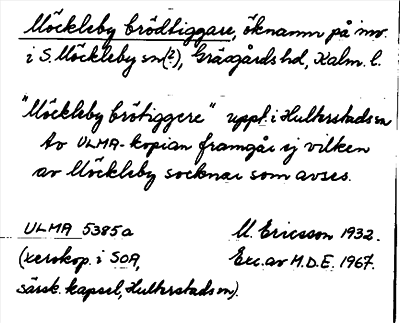 Möckleby brödtiggare, öknamn på inv.
i S. Möckleby sn(?), Gräsgårds hd, Kalm. l.
"Möckleby brötiggere" uppt. i Hulterstads sn
Av ULMA-kopian framgår ej vilken
av Möckleby socknar som avses.
ULMA 5385a M. Ericsson 1932.
(xerokop. i SOA, Exc. av M.D.E. 1967.
särsk. kapsel, Hulterstads sn).